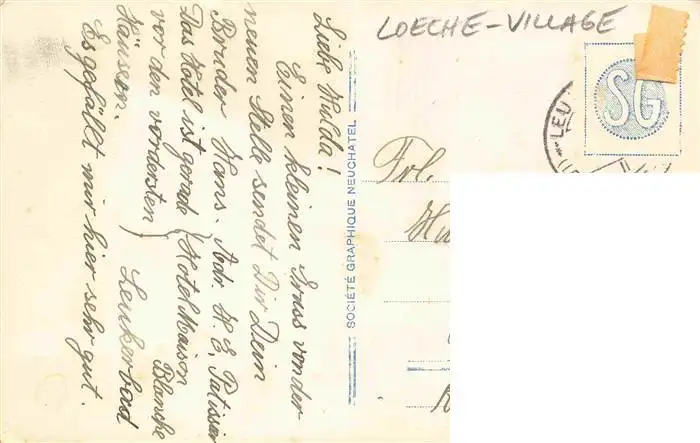 LOECHE-VILLAGE
Liebe Hulda!
Einen kleinen Gruss von der
neuen Stelle sendet Dir Dein
Bruder Hans. Adr. H. E. Patissier
Das Hotel ist gerade (Hotel Maison
Blanche
vor den vordersten) Leukerbad
Häusern.
Es gefällt mir hier sehr gut.
SOCIÉTÉ GRAPHIQUE NEUCHATEL
SG
LEU
Frl.
Hu